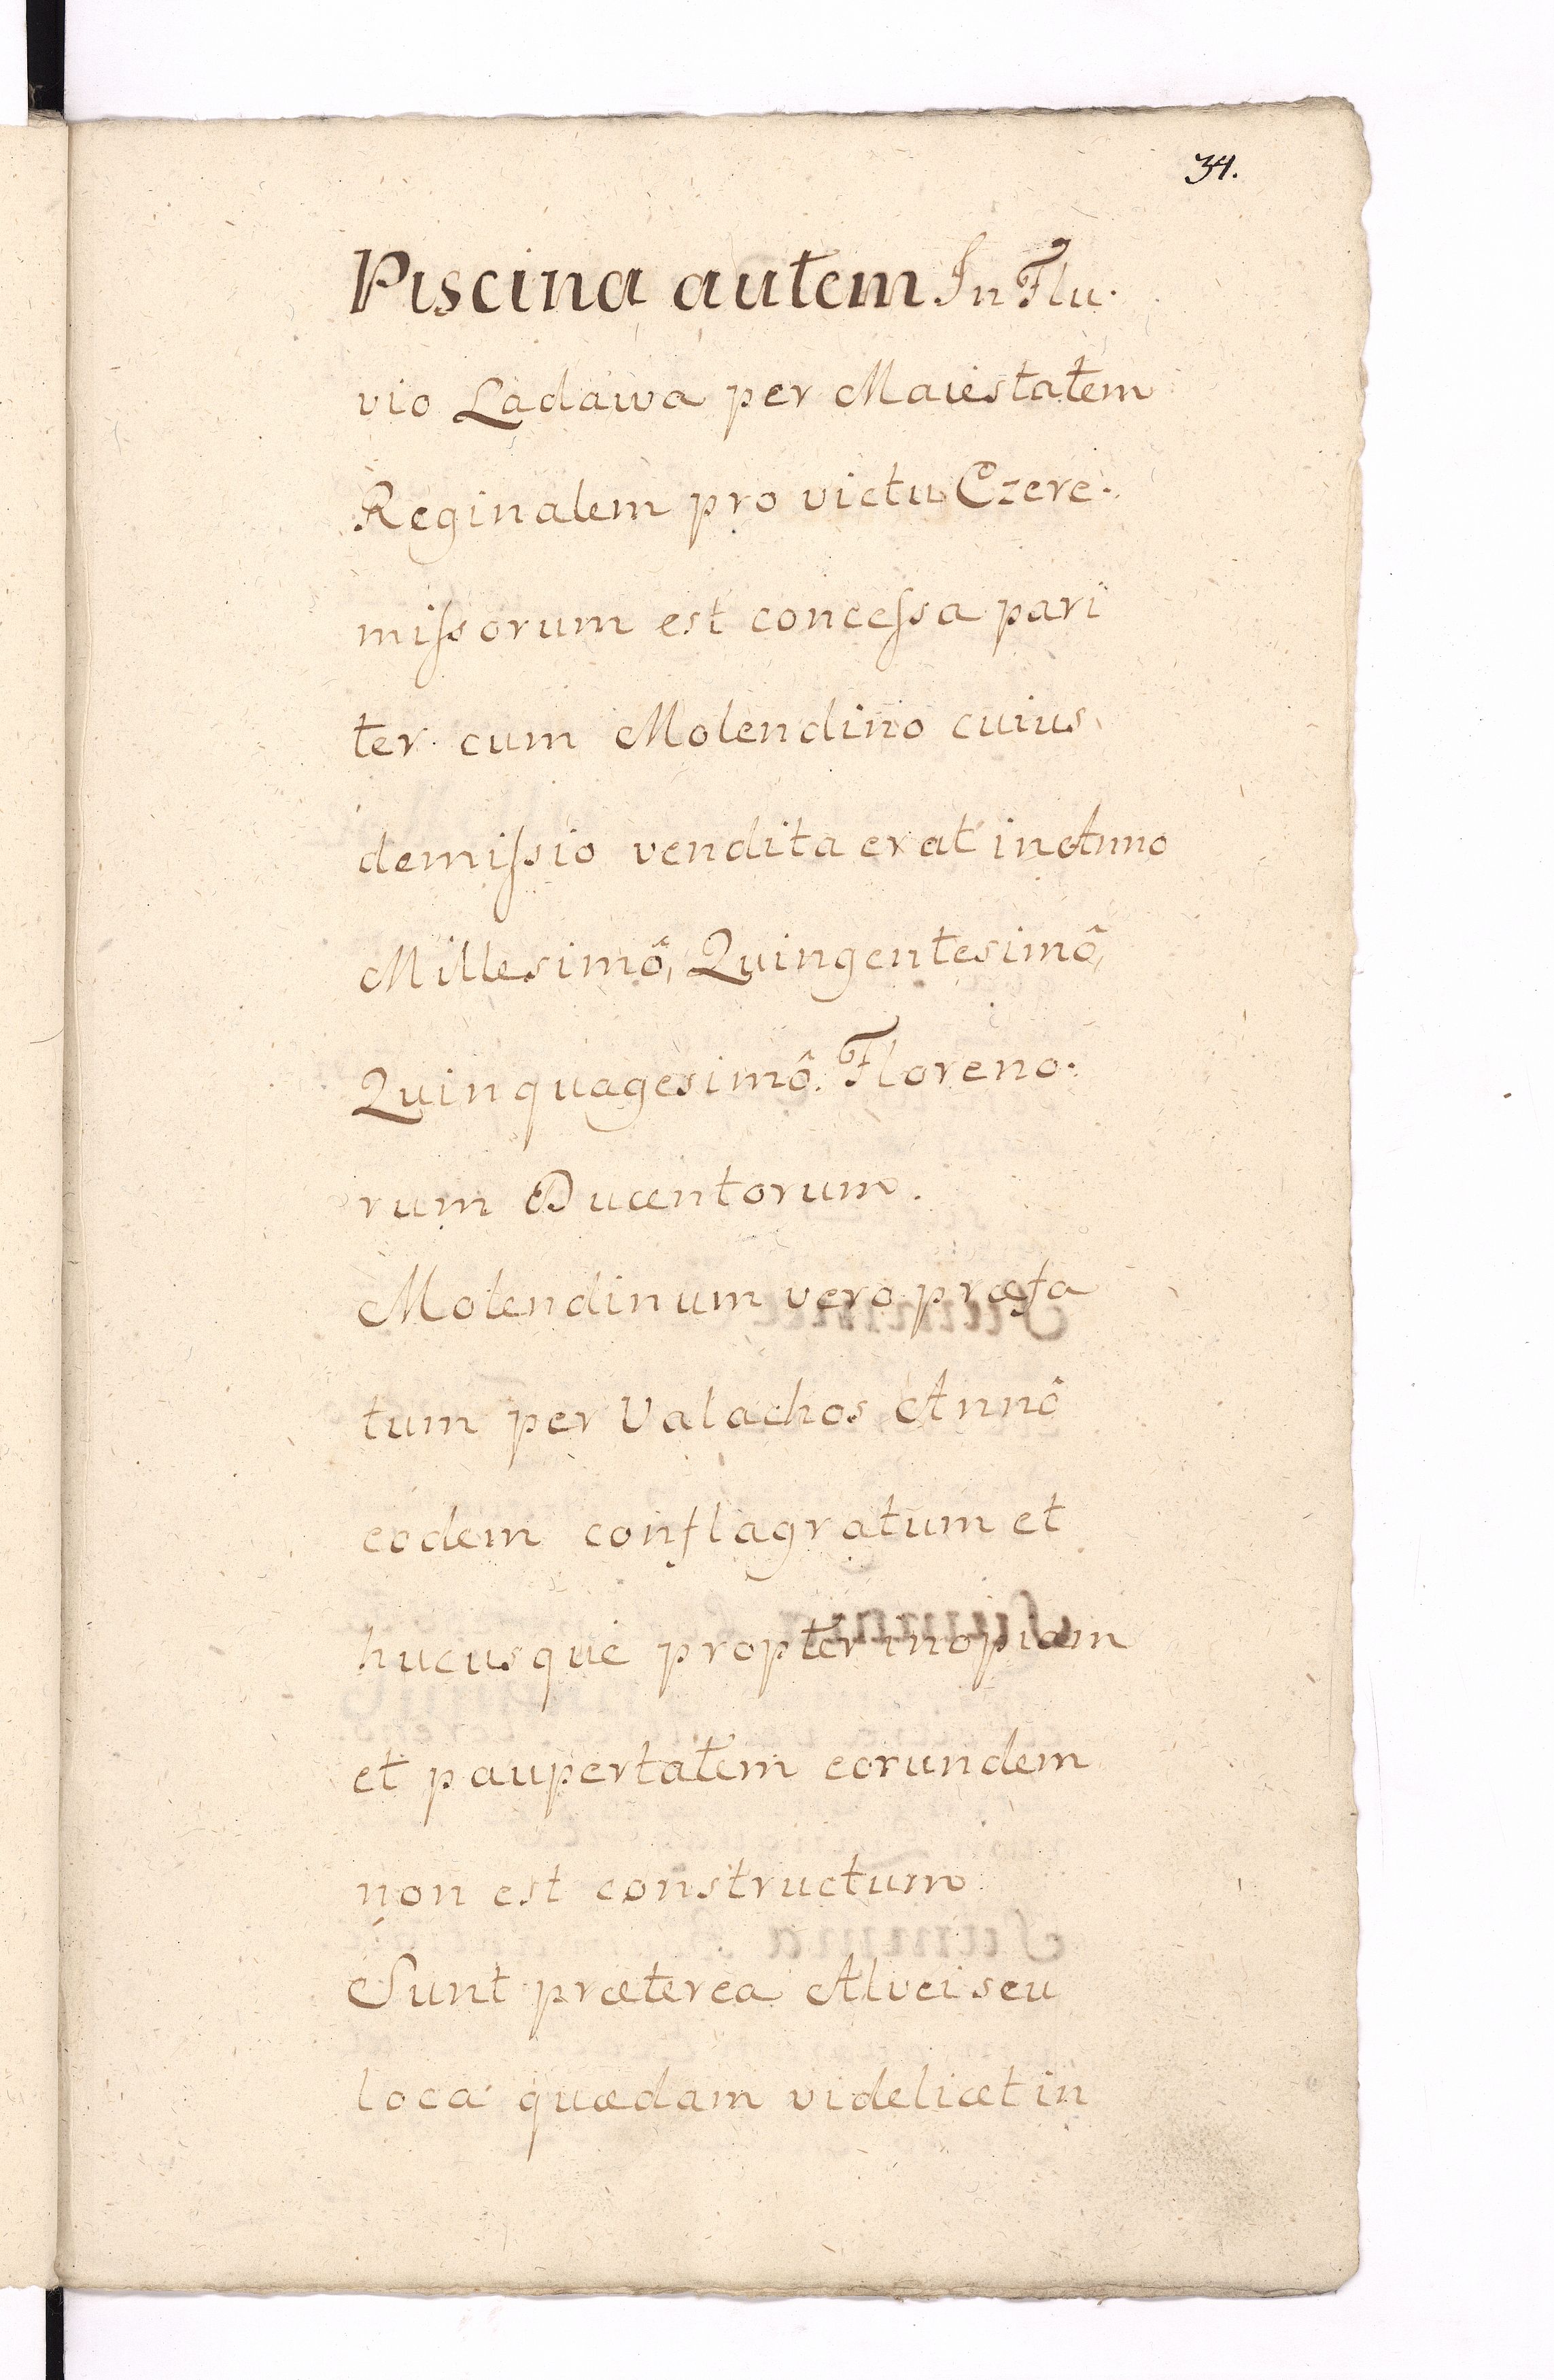 34.
Piscina autem In Flu.
vio Ladawa per Maiestatem
Reginalem pro victu Czere.
missorum est concessa pari
ter cum Molendino cuius
demissio vendita erat in Anno
Millesimô, Quingentesimô,
Quinquagesimô. Floreno.
rum Ducentorum.
Molendinum vero præfa
tum per Valachos Annô
eodem conflagratum et
hucusque propter inopiam
et paupertatem eorundem
non est constructum
Sunt præterea Alvei seu
loca quædam videlicet in